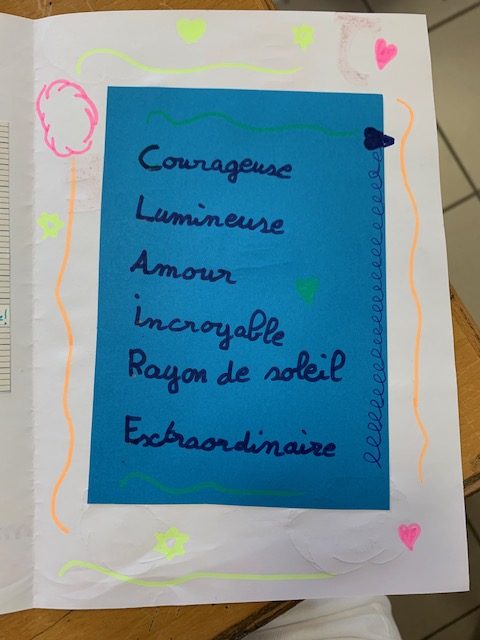 Courageuse
Lumineuse
Amour
incroyable
Rayon de soleil
Extraordinaire